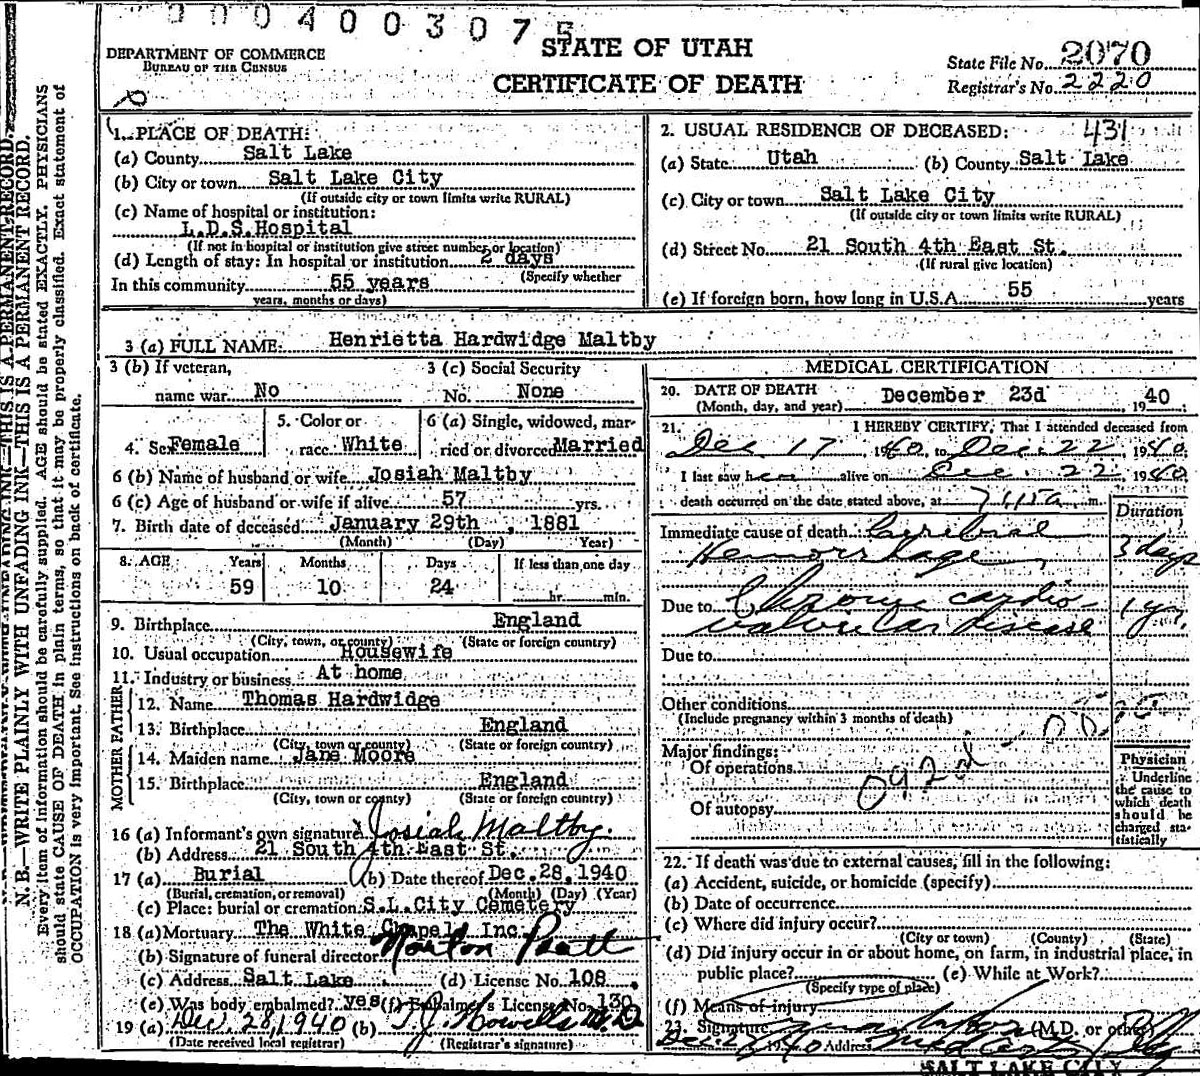 0004003075
STATE OF UTAH
CERTIFICATE OF DEATH
DEPARTMENT OF COMMERCE
BUREAU OF THE CENSUS
State File No. 2070
Registrar's No. 2220
1. PLACE OF DEATH:
(a) County Salt Lake
(b) City or town Salt Lake City
(If outside city or town limits write RURAL)
(c) Name of hospital or institution:
L.D.S.Hospital
(If not in hospital or institution give street number or location)
(d) Length of stay: In hospital or institution 2 days
(Specify whether
In this community 55 years
years, months or days)
2. USUAL RESIDENCE OF DECEASED: 431
(a) State Utah (b) County Salt Lake
(c) City or town Salt Lake City
(If outside city or town limits write RURAL)
(d) Street No. 21 South 4th East St.
(If rural give location)
(e) If foreign born, how long in U.S.A. 55 years
3 (a) FULL NAME: Henrietta Hardwidge Maltby
3 (b) If veteran, 3 (c) Social Security
name war No No. None
4. Sex Female 5. Color or race White 6 (a) Single, widowed, married or divorced Married
6 (b) Name of husband or wife Josiah Maltby
6 (c) Age of husband or wife if alive 57 yrs.
7. Birth date of deceased January 29th, 1881
(Month) (Day) Year)
8. AGE Years Months Days If less than one day
59 10 24 hr. min.
9. Birthplace England
(City, town, or county) (State or foreign country)
10. Usual occupation Housewife
11. Industry or business At home
FATHER
12. Name Thomas Hardwidge
13. Birthplace England
(City, town or county) (State or foreign country)
MOTHER
14. Maiden name Jane Moore
15. Birthplace England
(City, town or county) (State or foreign country)
16 (a) Informant's own signature Josiah Maltby
(b) Address 21 South 4th East St.
17 (a) Burial (b) Date thereof Dec. 28, 1940
(Burial, cremation, or removal) (Month) (Day) (Year)
(c) Place: burial or cremation S.L.City Cemetery
18 (a) Mortuary The White Chapel, Inc.
(b) Signature of funeral director
(c) Address Salt Lake (d) License No. 108
(e) Was body embalmed? yes (f) Embalmer's License No. 130
19 (a) Dec. 28, 1940 (b) M.D.
(Date received local registrar) (Registrar's signature)
MEDICAL CERTIFICATION
20. DATE OF DEATH December 23d 19 40
(Month, day, and year)
21. I HEREBY CERTIFY, That I attended deceased from
Dec 17 1940 to Dec. 22, 1940
I last saw her alive on Dec. 22, 1940
death occurred on the date stated above, at 7:15a m.
Duration
Immediate cause of death Cerebral
Hemorrhage 3 days
Due to Chronic cardio-
valvular disease 1 yr.
Due to
Other conditions
(Include pregnancy within 3 months of death)
Major findings:
Of operations
Of autopsy
Physician
Underline
the cause to
which death
should be
charged sta-
tistically
22. If death was due to external causes, fill in the following:
(a) Accident, suicide, or homicide (specify)
(b) Date of occurrence
(c) Where did injury occur?
(City or town) (County) (State)
(d) Did injury occur in or about home, on farm, in industrial place, in
public place? (e) While at Work?
(Specify type of place)
(f) Means of injury
23. Signature (M.D. or other)
Address
SALT LAKE CITY
N. B.—WRITE PLAINLY WITH UNFADING INK—THIS IS A PERMANENT RECORD.
Every item of information should be carefully supplied. AGE should be stated EXACTLY. PHYSICIANS
should state CAUSE OF DEATH in plain terms, so that it may be properly classified. Exact statement of
OCCUPATION is very important. See instructions on back of certificate.